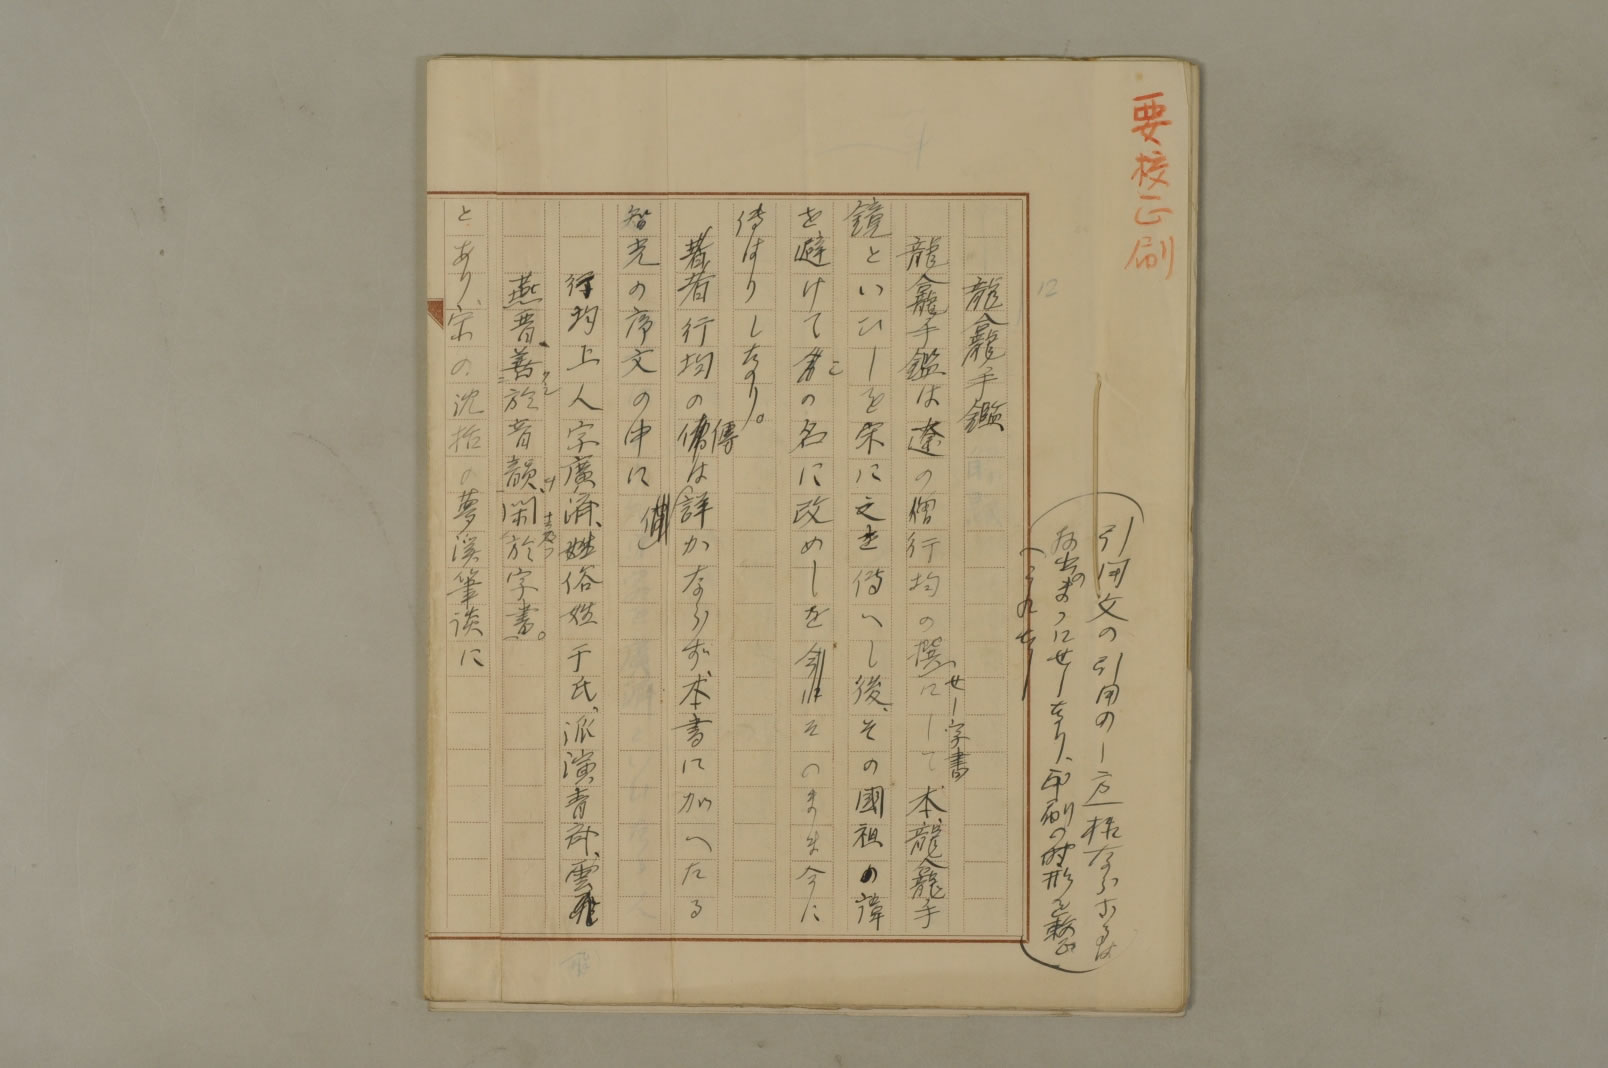 要校正刷
12
引用文の引用の一方
原文のまゝにせしなり、印刷の時形を
龍龕手鑑
龍龕手鑑は遼の僧行均の撰せし字書にして、本、龍龕手
鏡といひしを宋に之を傳へし後、その國祖の諱
を避けてこの名に改めしをそのまま今に
傳はりしなり。
著者行均の傳は詳かならず、本書に加へたる
智光の序文の中に
行均上人字廣濟、俗姓于氏、派演青齊、雲飛
燕晋、善於音韻、閑於字書。
とあり、宋の沈括の夢溪筆談に